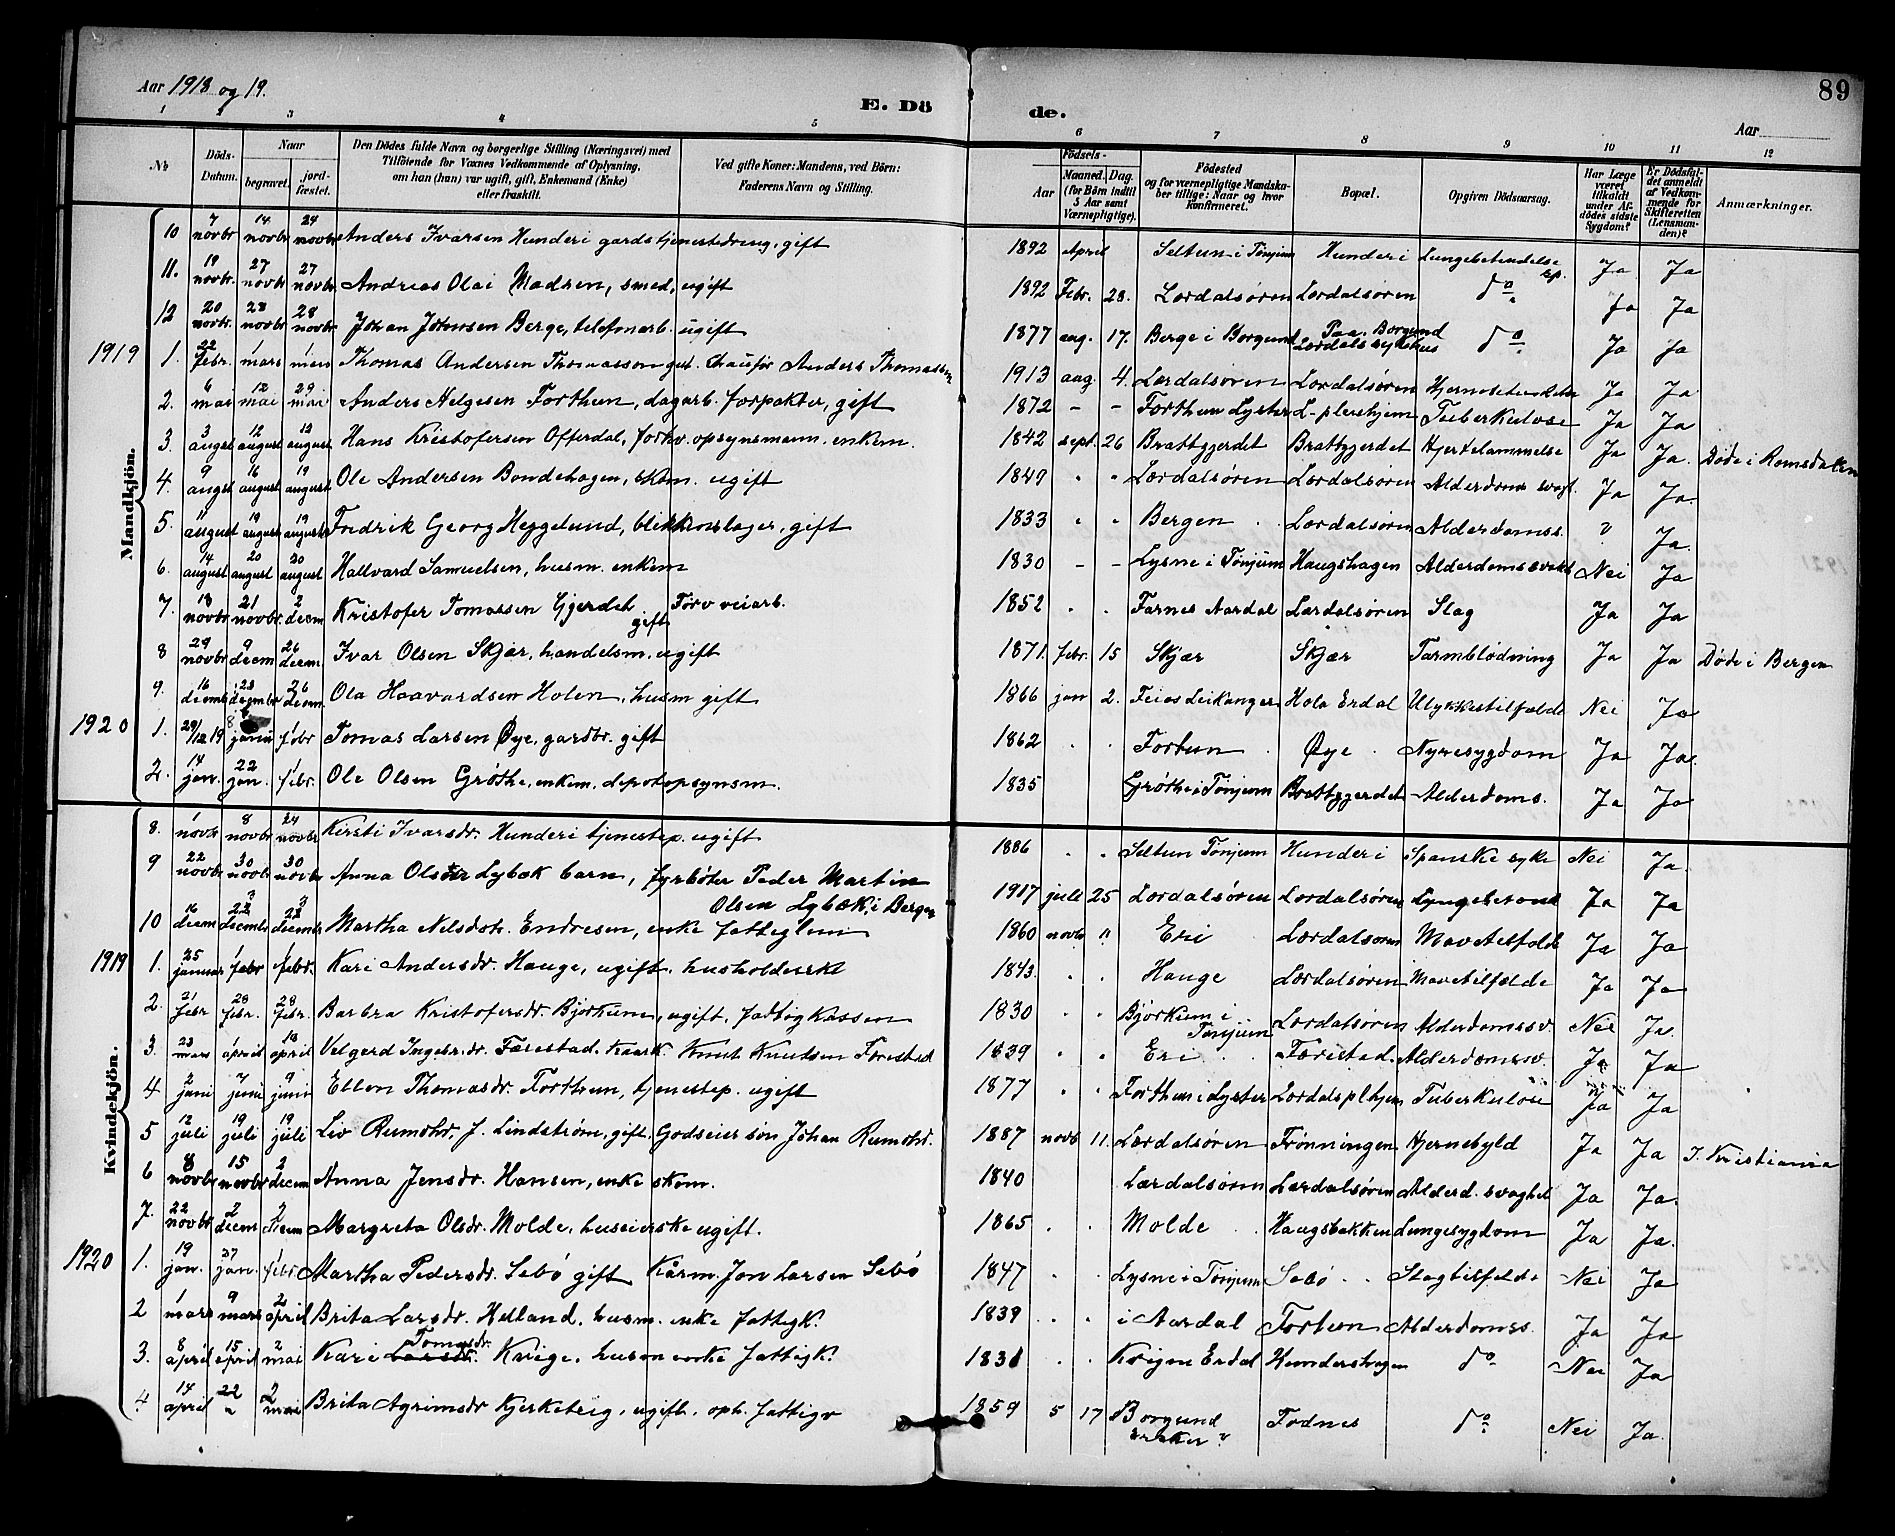 Aar 1918 og 19.
E. Dö de.
Aar
89
1 2 3 4 5 6 7 8 9 10 11 12
No
Döds-Datum.
Naar
begravet.
jordfæstet.
Den Dödes fulde Navn og borgerlige Stilling (Næringsvei) med Tilföiende for Voxnes Vedkommende af Oplysning, om han (hun) var ugift, gift, Enkemand (Enke) eller fraskilt.
Ved gifte Koner: Mandens, ved Börn: Faderens Navn og Stilling.
Födsels-
Aar
Maaned. Dag.
(for Börn indtil 5 Aar samt Værnepligtige).
Födested og for værnepligtige Mandskaber tillige: Naar og hvor konfirmeret.
Bopæl.
Opgiven Dödsaarsag.
Har Læge været tilkaldt under Afdödes sidste Sygdom?
Er Dödsfaldet anmeldt af Vedkommende for Skifteretten (Lensmanden)?
Anmærkninger.
Mandkjön.
10 7 novbr 14 novbr 24 novbr Anders Ivarsen Hunderi gardstjenestedreng, gift 1892 april Seltun i Tønjum Hunderi Lungebetendelse sp. Ja Ja
11. 19 novbr. 27 novbr 27 novbr. Andreas Olai Madsen, smed, ugift 1892 Febr. 28. Lærdalsøren Lærdalsøren do Ja Ja
12 20 novbr. 28 novbr 28 novbr Johan Johnsen Berge, telefonarb. ugift 1877 aug. 17. Berge i Borgund Paa Borgund Lærdals sykehus do Ja Ja
1919 1. 22 febr. 1 mars 1 mars Thomas Andersen Thomasson gut. Chaufør Anders Thomassen 1913 aug. 4. Lærdalsøren Lærdalsøren Ja Ja
2. 6 mai 12 mai 29 mai Anders Helgesen Forthun, dagarb. forpakter, gift 1872 - - Forthun Lyster L-pleiehjem Tuberkulose Ja Ja
3. 3 august 12 august 12 august Hans Kristofersen Offerdal, forhv. opsynsmann. enkem. 1842 sept. 26 Brattgjerdet Brattgjerdet Hjertelammelse Ja Ja. Døde i Romsdalen
4. 9 august 16 august 19 august Ole Andersen Bondehagen, skom. ugift 1849 " " Lærdalsøren Lærdalsøren Alderdoms svagh. Ja Ja.
5. 11 august 19 august 19 august Fredrik Georg Heggelund, blikkenslager, gift 1833 " " Bergen Lærdalsøren Alderdomss. ? Ja.
6. 14 august 20 august 20 august Hallvard Samuelsen, husm. enkem 1830 - - Lysne i Tønjum Haugshagen Alderdomssvakh Nei Ja
7. 18 novbr 21 novbr. 2 decm Kristofer Tomassen Gjerdet gift Forv veiarb. 1852 " " Farnes Aardal Lærdalsøren Slag Ja Ja
8 29 novbr 9 decm 26 decm Ivar Olsen Skjær, handelsm. ugift 1871. febr. 15 Skjær Skjær Tarmblødning Ja Ja Døde i Bergen
9. 16 decmb 23 decmbr 26 decm Ola Haavardsen Holen, husm gift 1866 jan 2. Feios Leikanger Hola Erdal Ulykkestilfælde Nei Ja
1920 1. 29/12 19 8 januar 1 febr Tomas Larsen Øye, gardbr. gift 1862 " " Fortun Øye Nyresygdom Ja Ja.
2. 14 jan. 22 jan. 1 febr. Ole Olsen Grøthe, enkem, depotopsynsm. 1835 Grøthe i Tønjum Brattgjerdet Alderdoms. Ja Ja
Kvindekjön.
8. 1 novbr 8 novbr 24 novbr Kirsti Ivarsdr. Hunderi tjenestep. ugift 1886 " " Seltun Tønjum Hunderi Spanske syke Nei Ja.
9 22 novbr 30 novbr 30 novbr Anna Olsen Lybæk barn, fyrbøter Peder Martin Olsen Lybæk, i Bergen 1917 juli 25 Lærdalsøren Lærdalsøren Lungebetend Ja Ja
10 16 decm 23 decmb 23 decmb Martha Nilsdotr. Endresen, enke fatteglem 1860 novb " Eri Lærdalsøren Mavetilfelde Ja Ja
1919 1. 25 januar 1 febr 1 febr. Kari Andersdr. Hauge, ugift, husholderske 1843. " " Hauge Lærdalsøren Mavetilfælde Ja Ja
2. 21 febr 28 febr. 28 febr. Barbra Kristofersdr. Bjørkum, ugift, fattigkassen 1830 " " Bjørkum i Tønjum Lærdalsøren Alderdomssv Nei Ja.
3. 23 mars 1 april 18 april Velgerd Ingebr.dr. Færestad. kaark. Knut Knutsen Færestad 1839 " " Eri Færestad. Alderdomssv. Ja Ja
4 2 juni 7 juni 9 juni Ellen Thomasdr. Forthun, tjenestep. ugift 1877 " " Forthun i Lyster Lærdals plhjem Tuberkulose Ja Ja
5 12 juli 19 juli 19 juli Liv Rumohr, f. Lindstrøm, gift, Godseier søn Johan Rumohr. 1887 novb 11. Lærdalsøren Frønningen Hjernebyld Ja Ja I. Kristiania
6 8 novbr 15 novbr 2 decem Anna Jensdr. Hansen, enke skom. 1840 Lærdalsøren Lærdalsøren Alderd. svaghet Ja Ja.
7. 22 novbr 2 decm 2 decem Margreta Olsdr. Molde, huseierske ugift. 1865 " " Molde Haugsbakken Lungesygdom Ja Ja.
1920 1. 19 jan. 27 jan. 1 febr Martha Pedersdr. Sebø gift Kårm. Jon Larsen Sebø 1847 " " Lysne i Tønjum Sebø Slagtilfelde Nei Ja
2 1 mars 9 mars 2 april Brita Larsdr. Helland, husm. enke fattigk. 1839 " " i Aardal Fortun Alderdomss. Ja Ja
3. 8 april 15 april 2 mai Kari Tomasdr. Kvige, husm enke fattigk. 1831 " " Kvigne Erdal Hundershagen do Nei Ja
4 14 april 22 " 2 mai Brita Agrimsdr Kjerketeig, ugift, oph. fattigv 1859 5 17 Borgund Fodnes do Nei Ja.